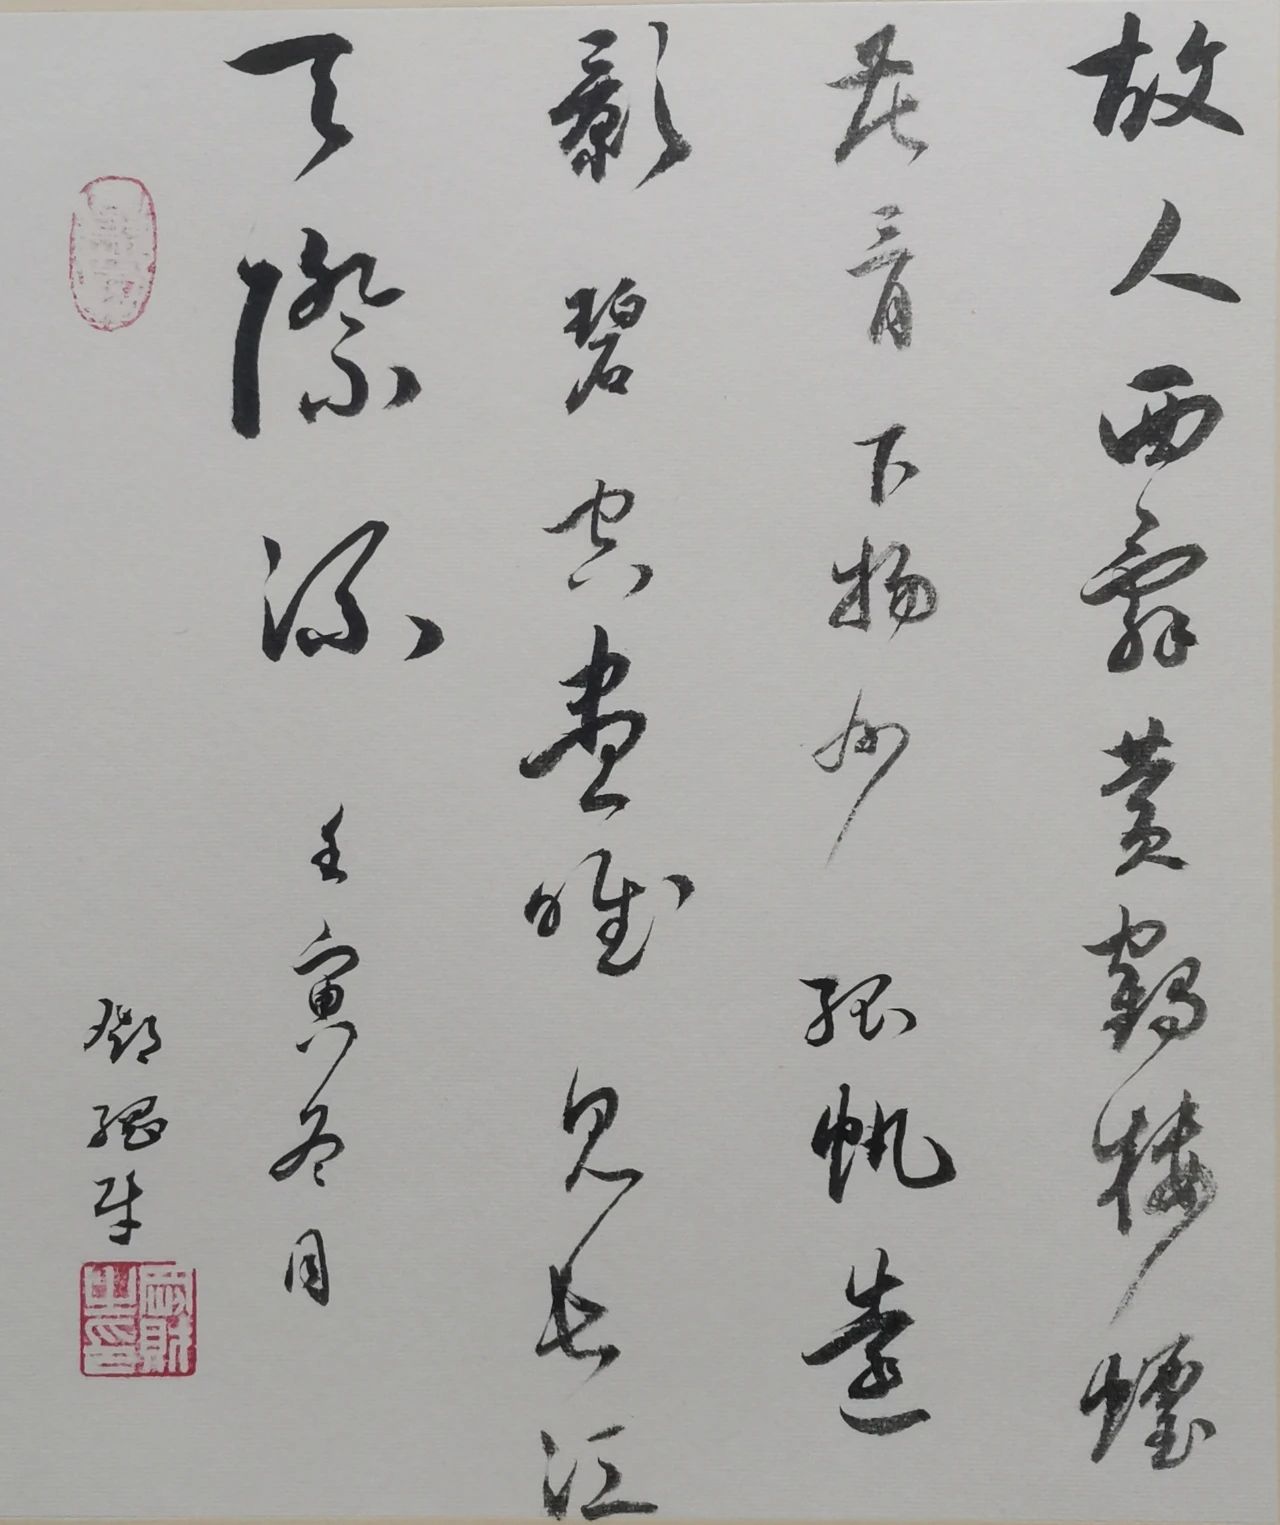 故人西辭黄鶴樓煙
花三月下揚州孤帆遠
影碧空盡唯見長江
天際流
壬寅冬月
鄧